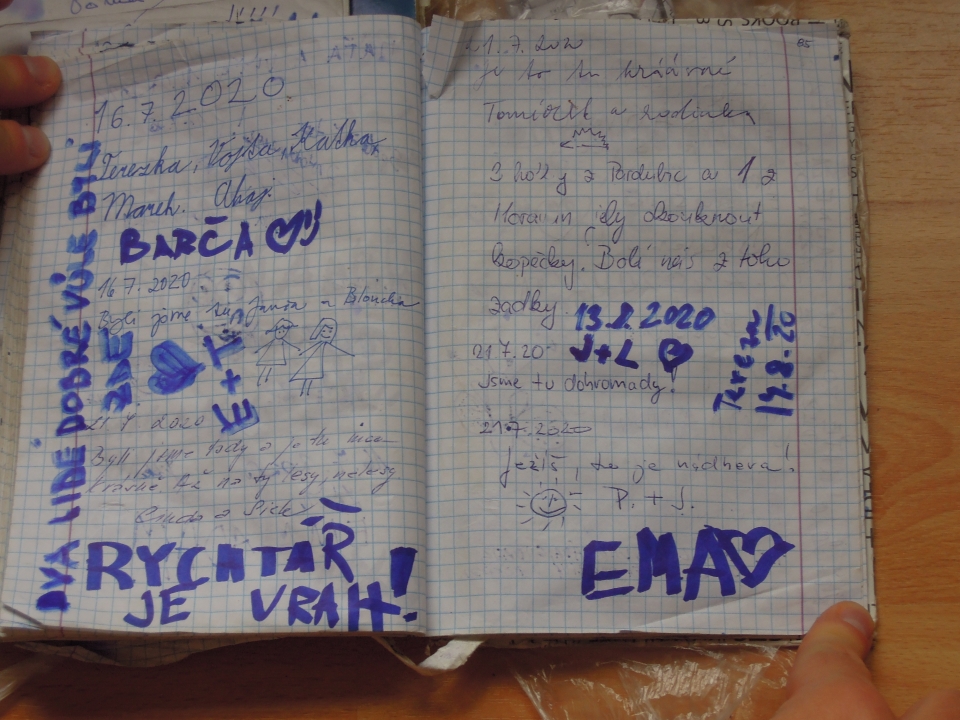 16.7.2020
Terezka, Vojta, Katka
Marek. Ahoj.
BARČA
16.7.2020
Byli jsme tu Janča a
E+T
DVA LIDÉ DOBRÉ VŮLE BYLI
ZDE
21.7.2020
Byli jsme tady a je tu
krásně
RYCHTÁŘ
JE VRAH!
21.7.2020
je to tu krásné
Tomíček a rodinka
3 holky z Pardubic a 1 z
jely
kopečky. Bolí nás z toho
zadky
13.8.2020
J+L
21.7.20
Jsme tu dohromady!
Tereza
14.8.20
21.7.2020
Ježiš, to je nádhera!
P. + J.
EMA
85